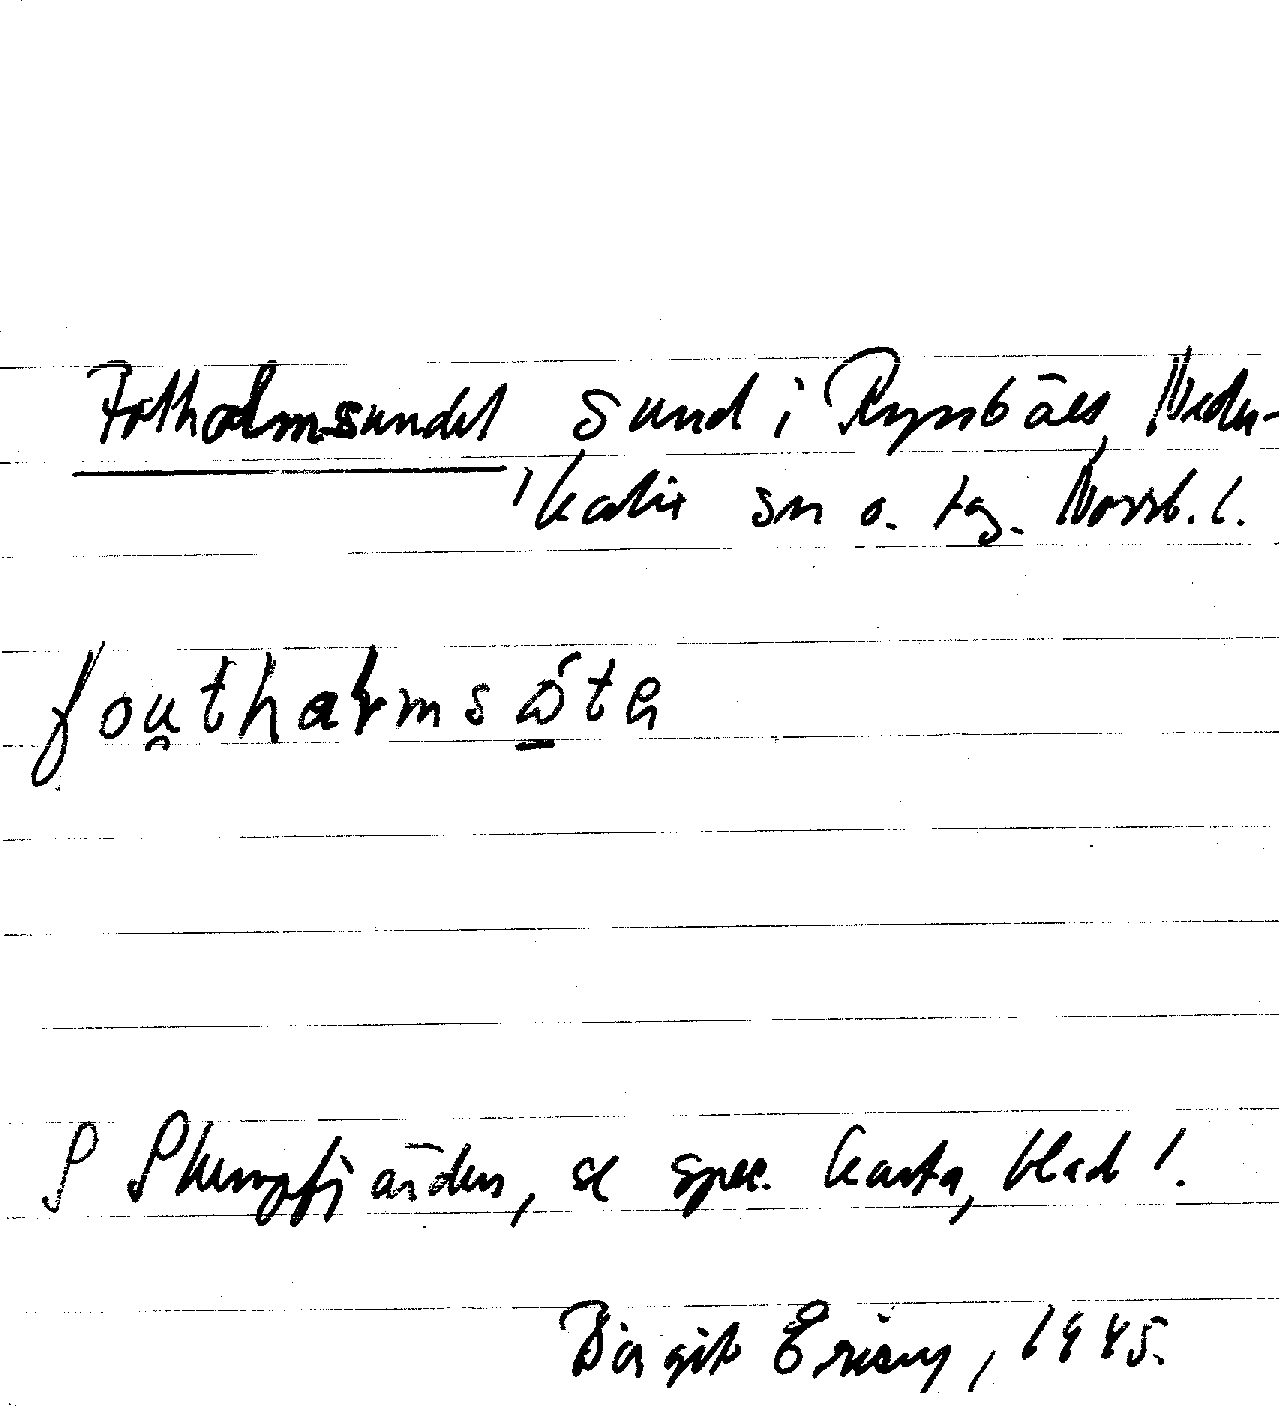 Fotholmsundet Sund i Ryssbält, Neder-
kalix sn o. tg. Norrb. l.
fou̯thaḷmsǿ̱te
S Skumpfjärden, se spec. karta, blad 1.
Birgit Eriksson, 1945.